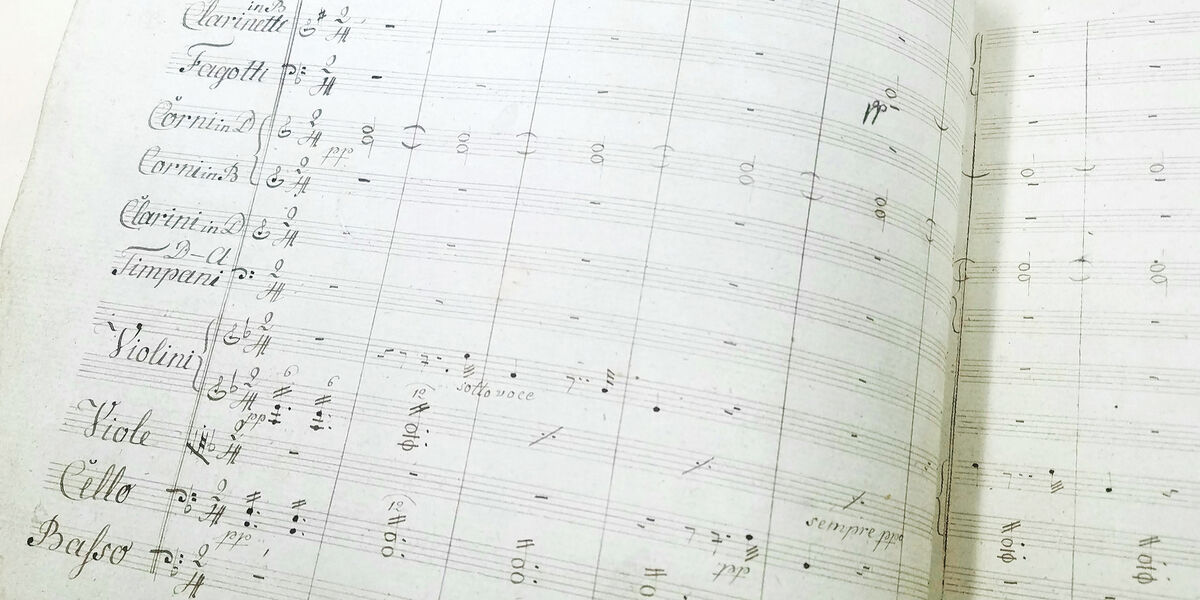 in B
Clarinetti
Fagotti
Corni in D
pp
pp
Corni in B
Clarini in D
B-A
Timpani
Violini
6 6
12
sotto voce
pp
Viole
Cello
12
sempre ppo
pp
Basso